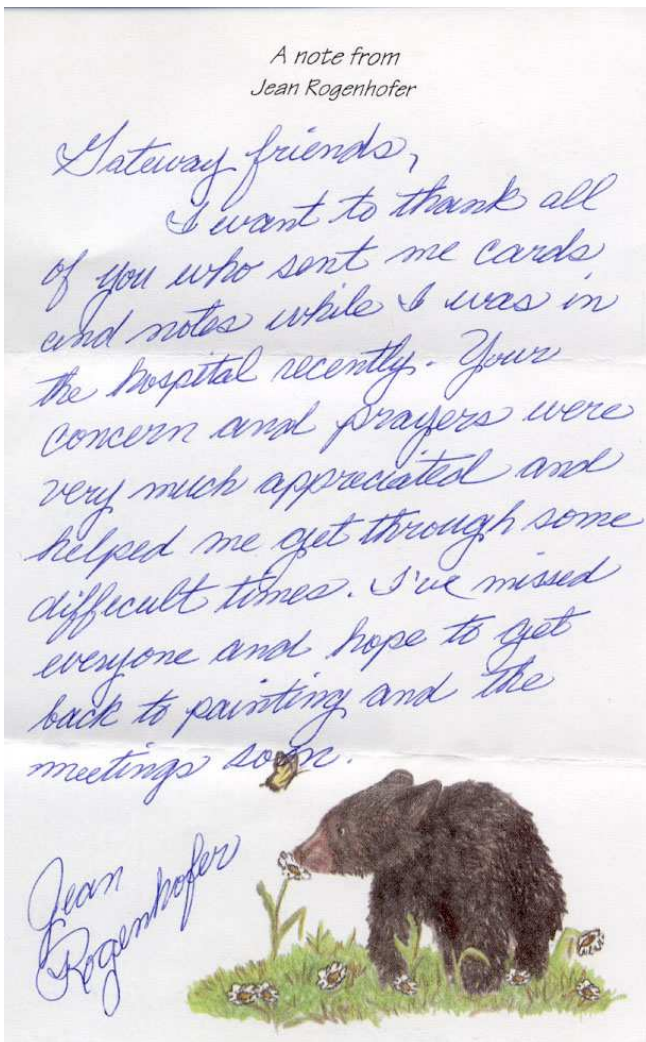 A note from
Jean Rogenhofer
Gateway friends,
I want to thank all
of you who sent me cards
and notes while I was in
the hospital recently. Your
concern and prayers were
very much appreciated and
helped me get through some
difficult times. I've missed
everyone and hope to get
back to painting and the
meetings soon.
Jean
Rogenhofer